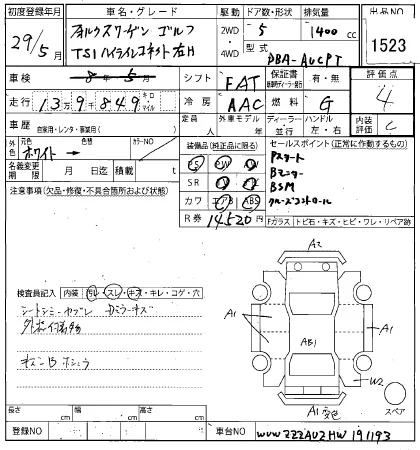 初度登録年月 車名・グレード 駆動 ドア数・形状 排気量 出品NO
29/5月 フォルクスワーゲン ゴルフ 2WD 4WD 5 1400cc 1523
TSIハイラインコネクト 右H 型式 DBA-AUCPT
車検 8年5月 シフト FAT 保証書 有・無 評価点 4
走行 13万9千849 キロ マイル 冷房 AAC 燃料 G
車歴 自家用・レンタ・事業用( ) 定員 人 外車モデル 年 ディーラー 並行 ハンドル 左・右 内装評価 C
外色 元色 ホワイト 色替 カラーNO
装備品(純正品に限る) セールスポイント(正常に作動するもの)
名義変更期限 月 日迄 積載 t
PS PW AW
SR
カワ エアB ABS
Pスタート
Bモニター
BSM
クルーズコントロール
注意事項(欠品・修復・不具合箇所および状態)
R券 14520円 Fガラス トビ石・キズ・ヒビ・ワレ・リペア跡
A2
検査員記入 内装 汚レ・スレ・キズ・キレ・コゲ・穴
シートシミ・ヨゴレ Dミラーキズ
外装小傷多
A1 AB1 A1
キズンB ホシュウ
W2
A1 変色
スペア
長さ cm 幅 cm 高さ cm
登録NO 車台NO WVWZZZAUZHW191193